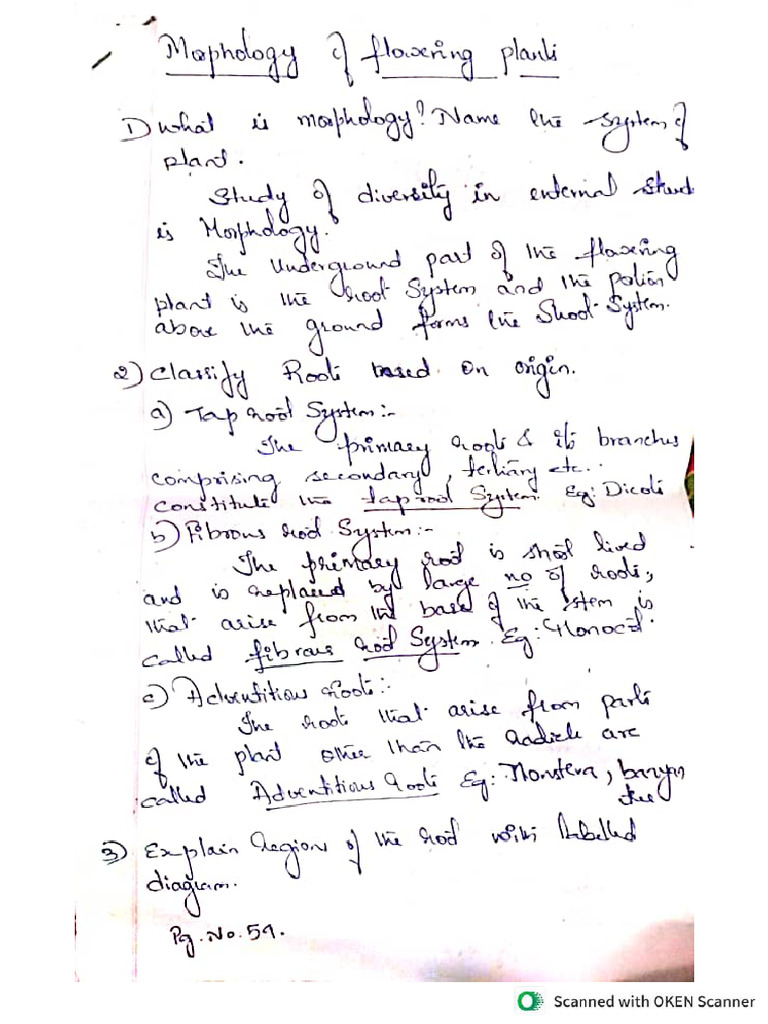 Morphology of flowering plants
1) What is morphology? Name the system of
plant.
Study of diversity in external
is Morphology.
The Underground part of the flowering
plant is the root System and the potion
above the ground forms the Shoot System.
2) Classify Roots based on origin.
a) Tap root System:-
The primary roots & its branches
comprising secondary, tertiary etc..
constitute the tap root System. Eg: Dicots
b) Fibrous root System:-
The primary root is short lived
and is replaced by large no of roots,
that arise from the base of the stem is
called fibrous root System. Eg: Monocot.
c) Adventitious roots:-
The roots that arise from parts
of the plant other than the radicle are
called Adventitious roots Eg: Monstera, banyan
tree
3) Explain Region of the root with labelled
diagram.
Pg. No. 59.
Scanned with OKEN Scanner